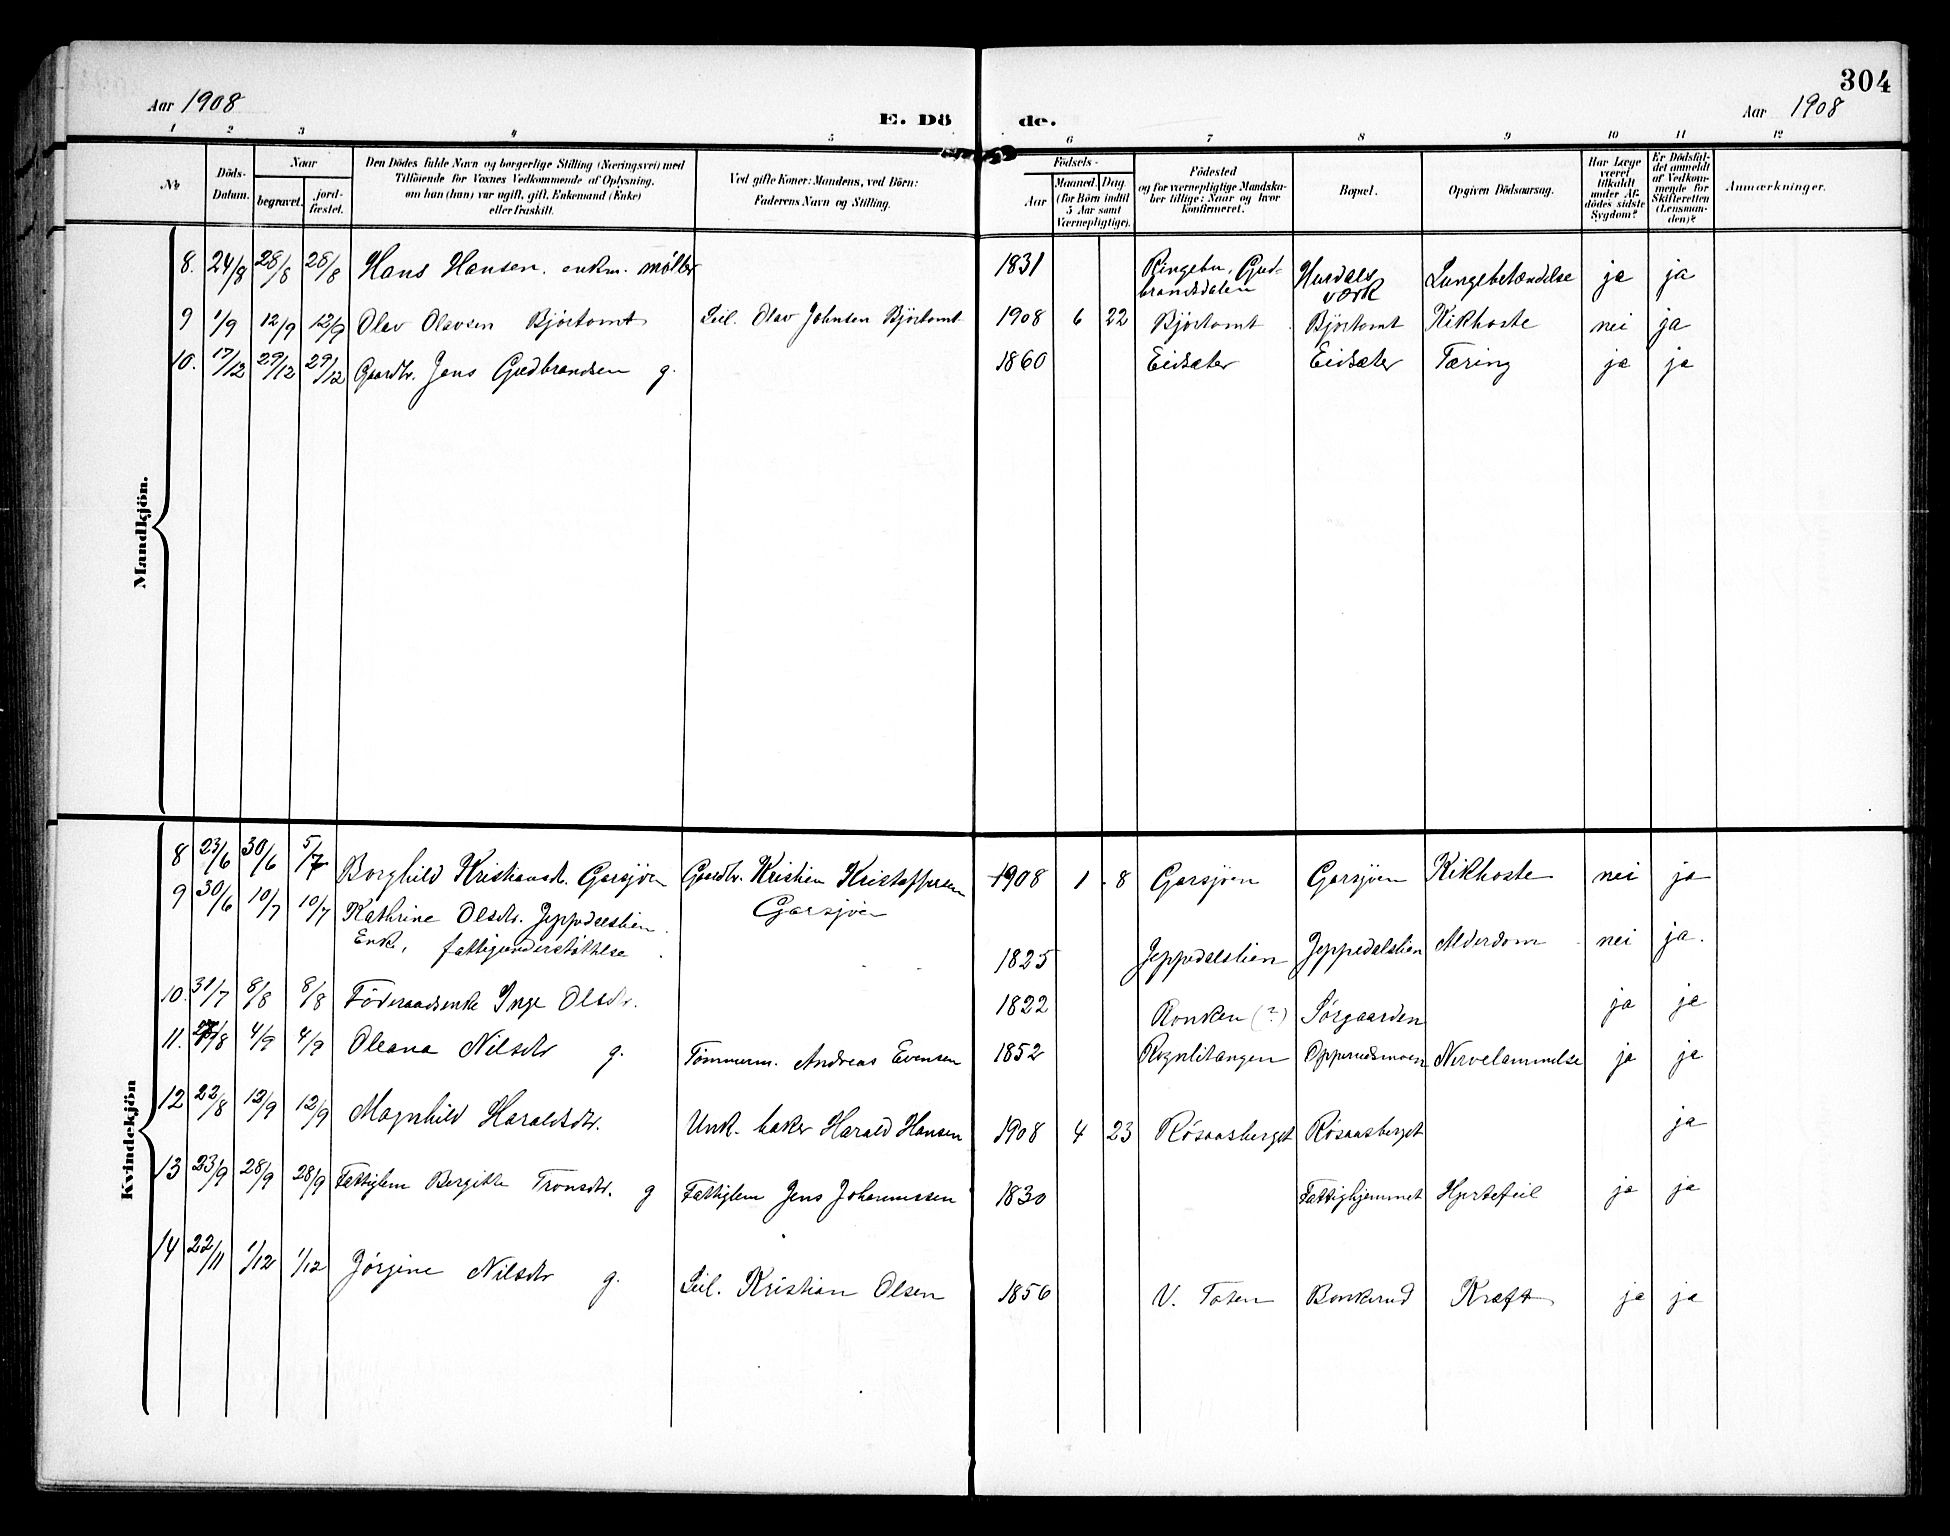 304
Aar 1908
E. Dö de.
Aar 1908
1 2 3 4 5 6 7 8 9 10 11 12
No
Döds-Datum.
Naar
begravet.
jord-fæstet.
Den Dödes fulde Navn og borgerlige Stilling (Næringsvei) med
Tilföiende for Voxnes Vedkommende af Oplysning,
om han (hun) var ugift, gift, Enkemand (Enke)
eller fraskilt.
Ved gifte Koner: Mandens, ved Börn:
Faderens Navn og Stilling.
Födsels-
Aar
Maaned. Dag
(for Börn indtil
5 Aar samt
Værnepligtige).
Födested
og for værnepligtige Mandska-
ber tillige: Naar og hvor
konfirmeret.
Bopæl.
Opgiven Dödsaarsag.
Har Læge
været
tilkaldt
under Af-
dödes sidste
Sygdom?
Er Dödsfal-
det anmeldt
af Vedkom-
mende for
Skifteretten
(Lensman-
den)?
Anmærkninger.
Mandkjön.
8. 24/8 28/8 28/8 Hans Hansen. enkm. møller 1831 Ringebu, Gud-
brandsdalen Hurdals
værk Lungebetændelse ja ja
9 1/9 12/9 12/9 Olav Olavsen Bjørtomt Leil. Olav Johnsen Bjørtomt 1908 6 22 Bjørtomt Bjørtomt Kikhoste nei ja
10. 17/12 29/12 29/12 Gaardbr. Jens Gudbrandsen g. 1860 Eidsæter Eidsæter Tæring ja ja
Kvindekjön
8 23/6 30/6 5/7 Borghild Kristiansdtr. Garsjøen Gaardbr. Kristian Kristoffersen
Garsjøen 1908 1 8 Garsjøen Garsjøen Kikhoste nei ja
9 30/6 10/7 10/7 Kathrine Olsdtr. Jeppedalslien
Enke, fattigunderstøttelse 1825 Jeppedalslien Jeppedalslien Alderdom nei ja.
10. 31/7 8/8 8/8 Föderaadsenke Inge Olsdtr. 1822 Ronken (?) Sørgaarden ja ja
11. /8 4/9 4/9 Oleana Nilsdtr g. Tømmerm. Andreas Evensen 1852 Rognlitangen Opperudsmoen Nervelammelse ja ja
12 22/8 12/9 12/9 Magnhild Haraldsdtr. Unk. baker Harald Hansen 1908 4 23 Røsaasberget Røsaasberget ja
13 23/9 28/9 28/9 Fattiglem Bergitte Tronsdtr. g Fattiglem Jens Johannessen 1830 Fattighjemmet Hjertefeil ja ja
14 22/11 1/12 1/12 Jørgine Nilsdtr g. Leil. Kristian Olsen 1856 V. Toten Bonkerud Kræft ja ja